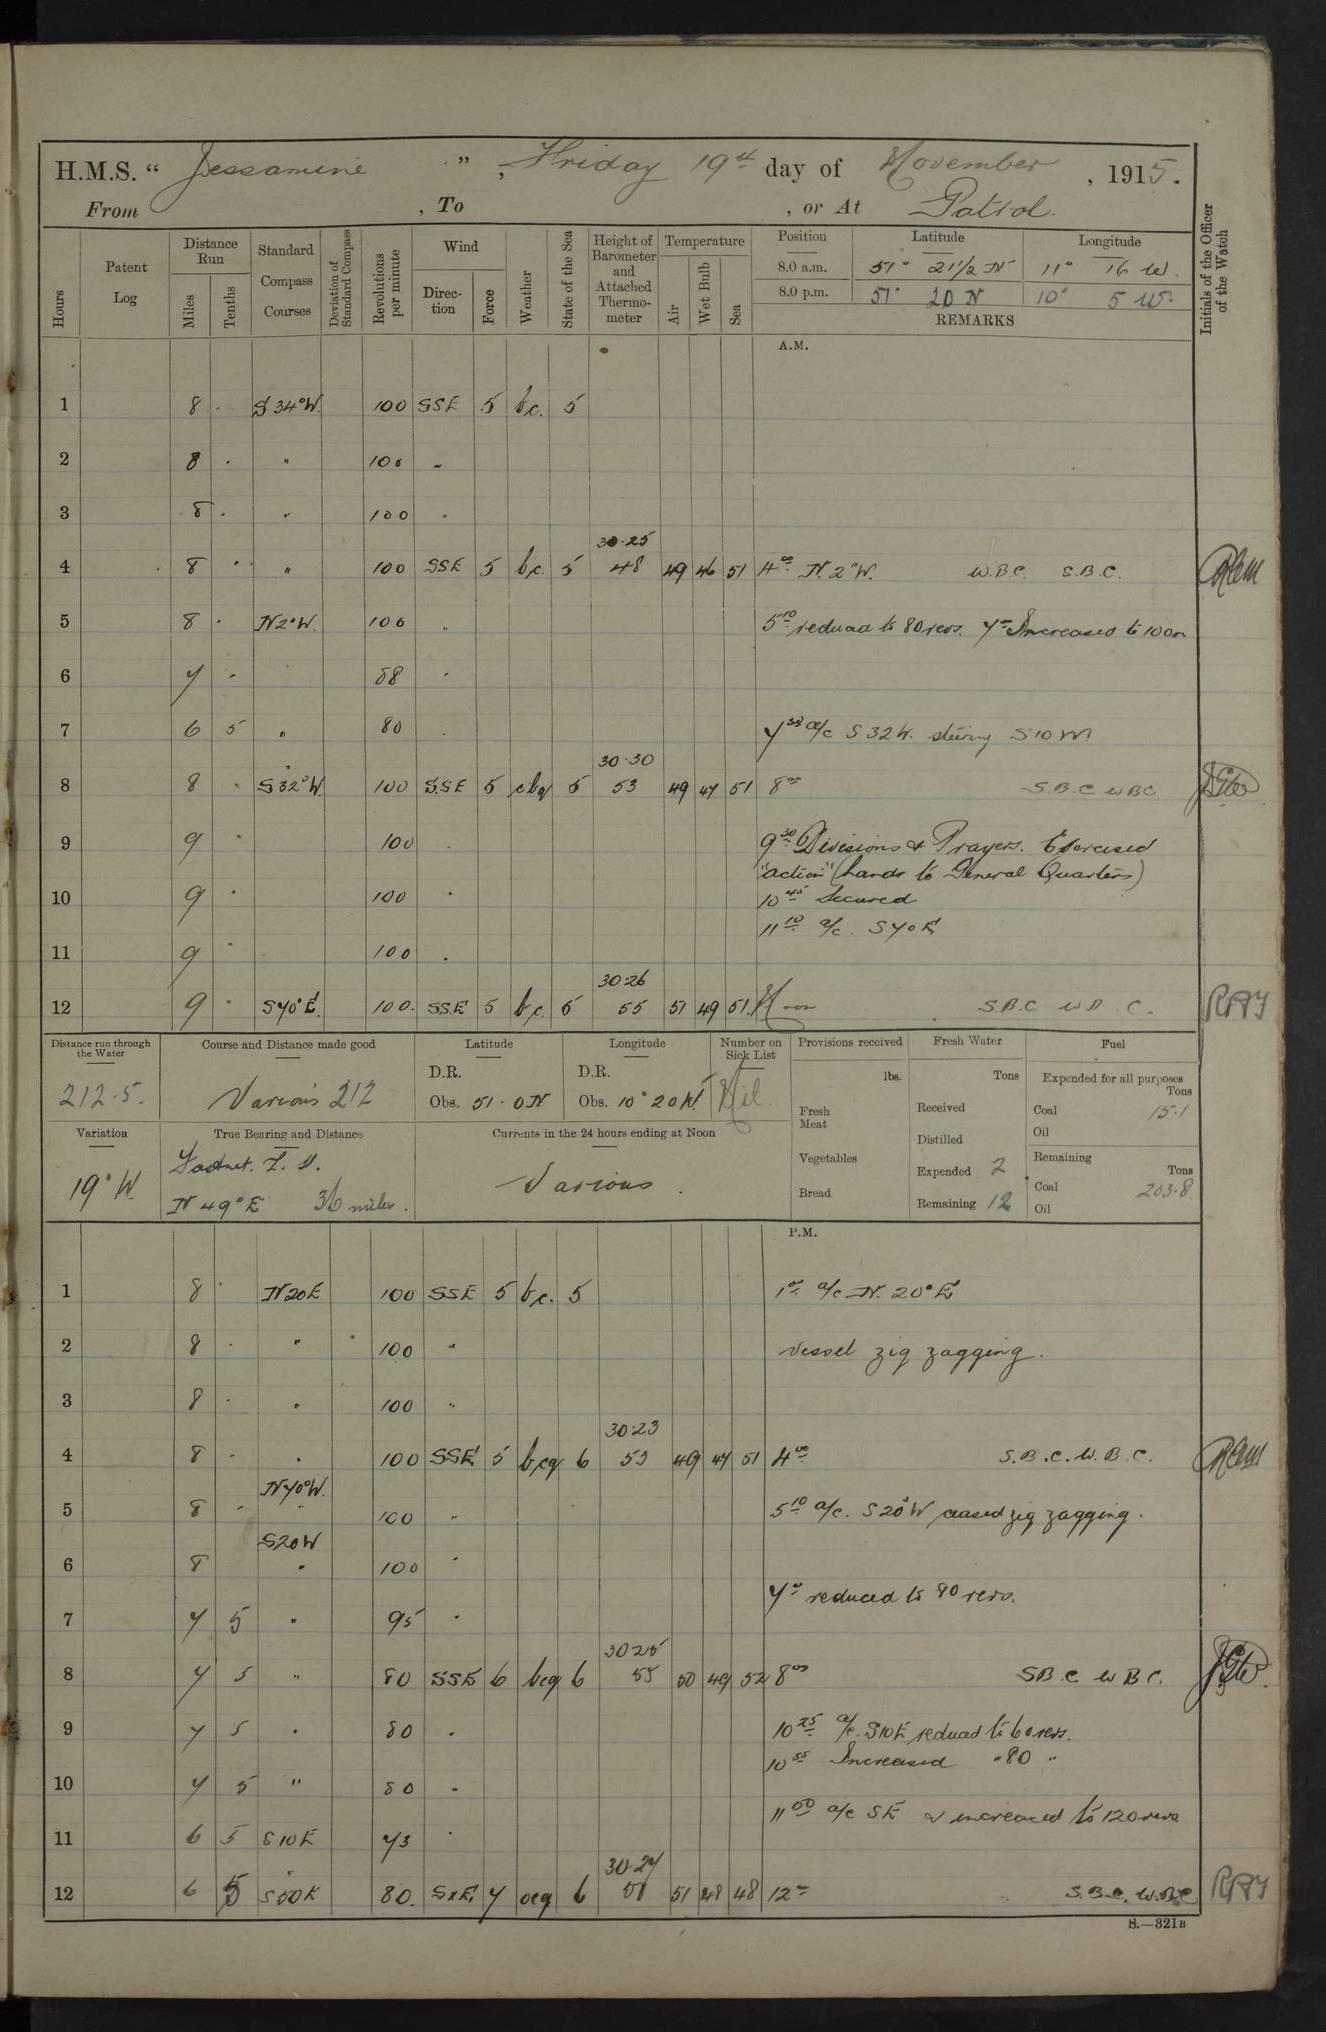 H.M.S. " Jessamine " , Friday 19th day of November , 1915.
From , To , or At Patrol.
Hours
Patent Log
Distance Run
Miles
Tenths
Standard Compass Courses
Deviation of Standard Compass
Revolutions per minute
Wind
Direction
Force
Weather
State of the Sea
Height of Barometer and Attached Thermometer
Temperature
Air
Wet Bulb
Sea
Position Latitude Longitude
8.0 a.m. 51° 21½ N 11° 16 W.
8.0 p.m. 51° 20 N 10° 5 W.
REMARKS
Initials of the Officer of the Watch
A.M.
1 8 . S 34° W. 100 SSE 5 bc. 5
2 8 . " 100 "
3 8 . " 100 "
30.25
4 8 . " 100 SSE 5 bc. 5 48 49 46 51 4.00 N. 2° W. W.B.C. S.B.C.
5 8 . N 2° W. 100 " 5.10 reduced to 80 revs. 7.00 Increased to 100
6 7 . 88 "
7 6 5 " 80 " 7.50 a/c S 32 W. steering S 10 W
30.30
8 8 . S 32° W. 100 SSE 5 cbq 5 53 49 47 51 8.00 S.B.C W B C
9 9 . 100 " 9.30 Divisions & Prayers. Exercised
"action" (hands to General Quarters)
10 9 . 100 " 10.45 Secured
11.10 a/c. S 70 E
11 9 . 100 "
30.26
12 9 . S 70° E. 100. SSE 5 bc. 5 55 51 49 51. Noon S.B.C. W B. C.
Distance run through the Water
212.5.
Course and Distance made good
Various 212
Latitude
D.R.
Obs. 51 . 0 N
Longitude
D.R.
Obs. 10° 20 W.
Number on Sick List
Nil.
Provisions received
lbs.
Fresh Meat
Vegetables
Bread
Fresh Water
Tons
Received
Distilled
Expended 2
Remaining 12
Fuel
Expended for all purposes
Tons
Coal 15.1
Oil
Remaining
Tons
Coal 203.8
Oil
Variation
19° W.
True Bearing and Distance
N 49° E 36 miles.
Currents in the 24 hours ending at Noon
Various.
P.M.
1 8 . N 20 E 100 SSE 5 bc. 5 1.00 a/c N. 20° E
2 8 . " 100 " Vessel zig zagging.
3 8 . " 100 "
30.23
4 8 . " 100 SSE 5 bcq 6 53 49 47 51 4.00 S.B.C. W.B.C.
N 70° W.
5 8 . " 100 " 5.10 a/c. S 20° W ceased zig zagging.
S 20 W
6 8 " 100 "
7.00 reduced to 80 revs.
7 7 5 " 95 "
30.25
8 7 5 " 80 SSE 6 bcq 6 55 50 49 52 8.00 S B C W B C.
9 7 5 " 80 " 10.25 a/c. S 10 E reduced to 60 revs.
10.55 Increased " 80 "
10 7 5 " 80 "
11.50 a/c SE & increased to 120 revs
11 6 5 S 10 E 73 "
30.27
12 6 5 S 50 E 80. SxE 7 ocq 6 51 48 48 12.00 S.B.C. W.B.C
S.—321B